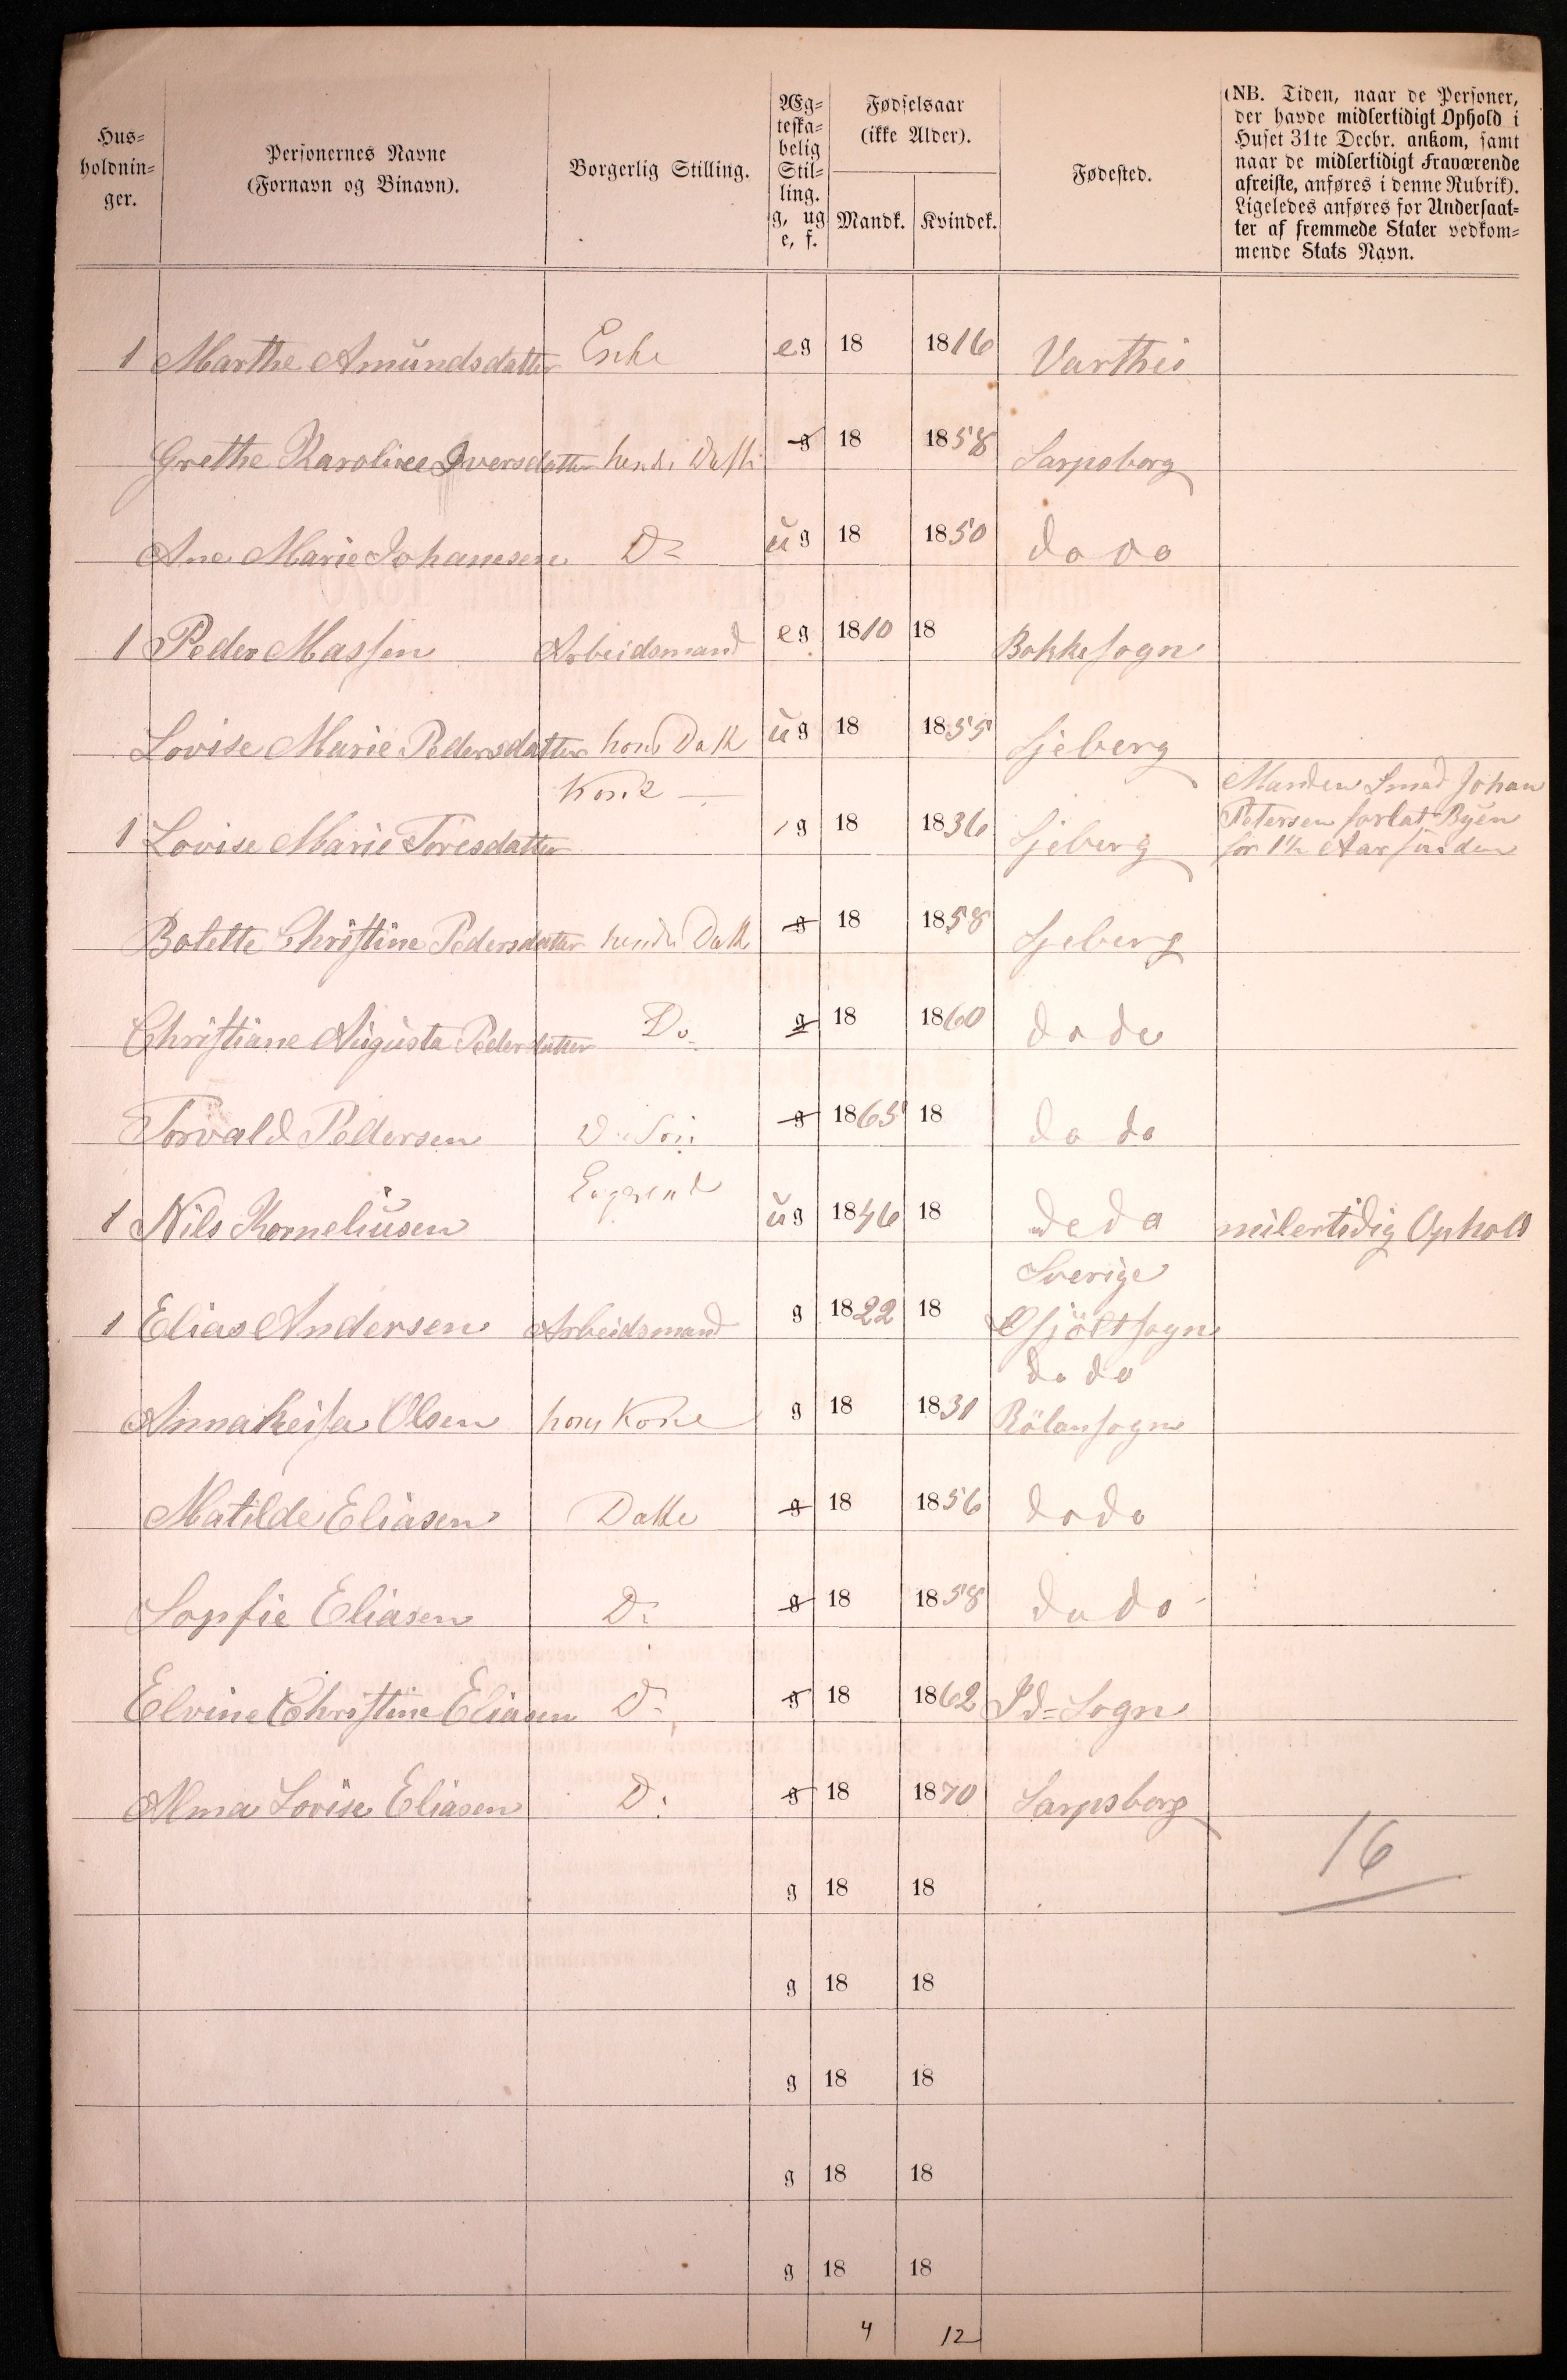 Hus=
holdnin=
ger.
Personernes Navne
(Fornavn og Binavn).
Borgerlig Stilling.
Æg=
teska=
belig
Stil=
ling.
g, ug
e, f.
Fødselsaar
(ikke Alder).
Mandk. Kvindek.
Fødested.
(NB. Tiden, naar de Personer,
der havde midlertidigt Ophold i
Huset 31te Decbr. ankom, samt
naar de midlertidigt Fraværende
afreiste, anføres i denne Rubrik).
Ligeledes anføres for Undersaat=
ter af fremmede Stater vedkom=
mende Stats Navn.
1 Marthe Amündsdatter Enke eg 18 1816 Varthei
Grethe Karoline Iversdatter hendes Datter g 18 1858 Sarpsborg
Ane Marie Johannesen Do üg 18 1850 do do
1 Peder Massen Arbeidsmand eg 1810 18 Bakkesogn
Lovise Marie Pedersdatter hans Datt üg 18 1855 Sjeberg
Kone Manden Smed Johan
1 Lovise Marie Toresdatter g 18 1836 Sjeberg Petersen forlat Byen
for 1½ Aar siden
Bolette Christine Pedersdatter hendes Datt g 18 1858 Sjeberg
Christiane Augüsta Pedersdatter Do g 18 1860 do do
Torvald Pedersen Do Søn g 1865 18 do do
1 Nils Korneliüsen üg 1846 18 do do milertidig Ophold
Sverige
1 Elias Andersen Arbeidsmand g 1822 18
do do
Annaleisa Olsen hans Kone g 18 1831 Rölansogn
Matilde Eliasen Datte g 18 1856 do do
Sopfie Eliasen Do g 18 1858 do do
Elvine Christine Eliasen Do g 18 1862 Id=Sogn
Alma Lovise Eliasen Do g 18 1870 Sarpsborg
16
g 18 18
g 18 18
g 18 18
g 18 18
g 18 18
4 12